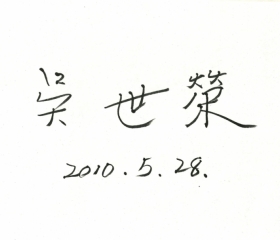 吴世荣
2010.5.28.